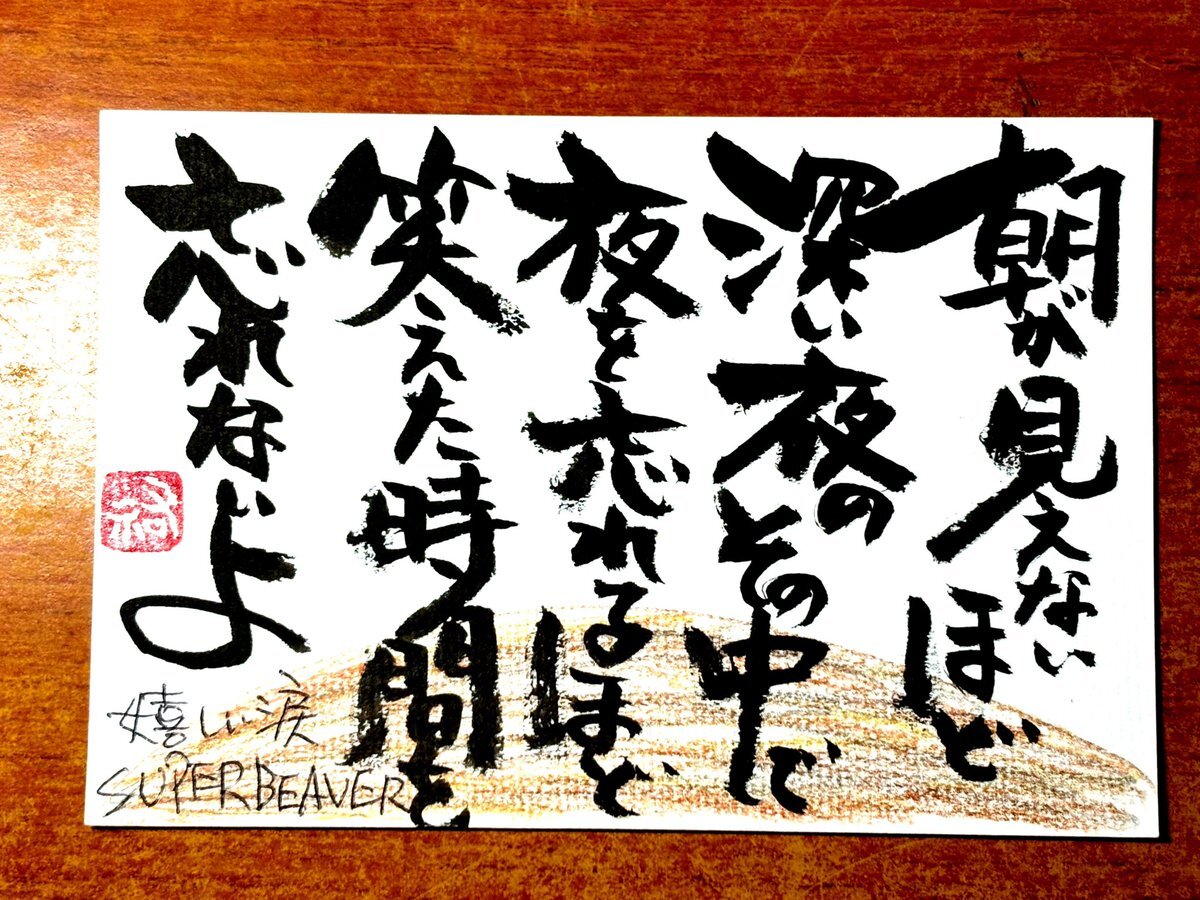 朝が見えないほど
深い夜のその中で
夜を忘れるほど
笑えた時間を
忘れないよ
嬉しい涙
SUPER BEAVER